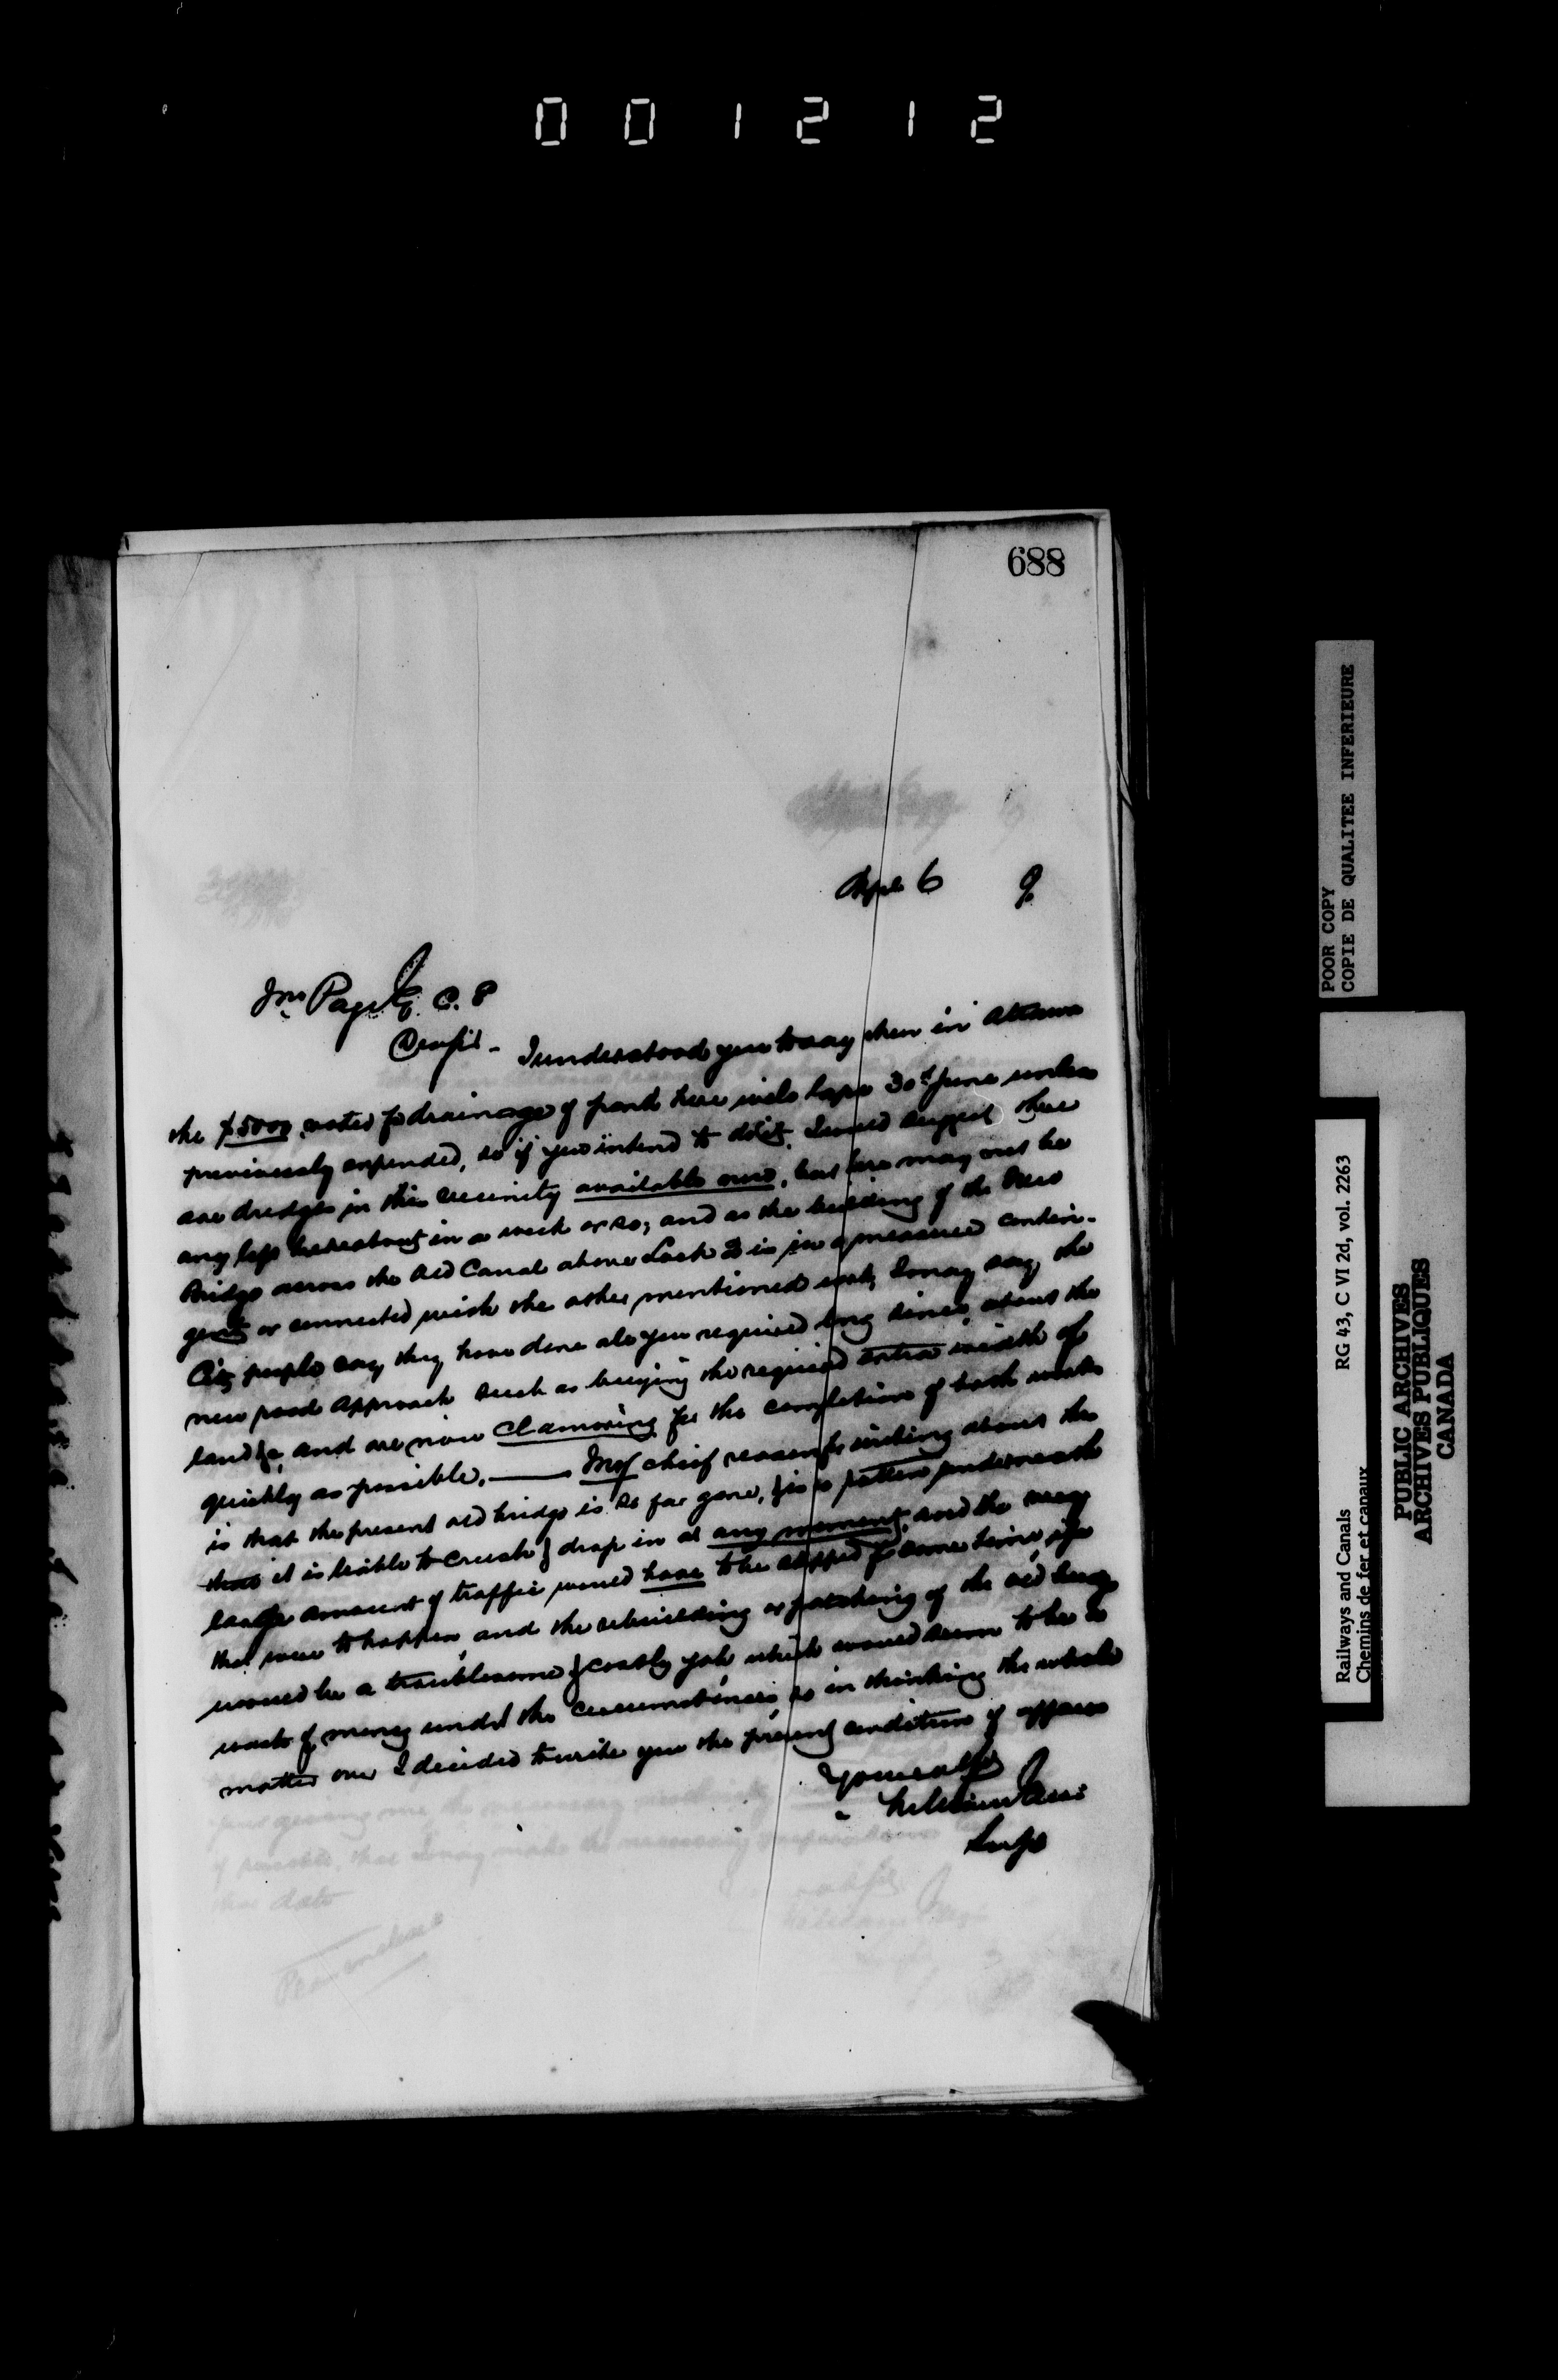 001212
688
Apl 6 9
Jno Page Esq. C. E
Dr Sir - I understood you to say when in Ottawa
the $5000 voted for drainage of pond here will lapse 30th June unless
previously expended, so if you intend to do it, I would suggest there
are dredges in this vicinity available now, but here may not be
any left hereabout in a week or so; and as the building of the New
Bridge across the Old Canal above Lock 2 is in a measure contin-
gent or connected with the other mentioned work, I may say, the
City people say they have done all you required long since, about the
new road approach such as buying the required extra width of
land &c, and are now clamoring for the completion of both works
quickly as possible. — My chief reason for writing about the
is that the present old bridge is so far gone, & is so rotten underneath
that it is liable to crush & drop in at any moment, and the very
large amount of traffic would have to be stopped for some time, if
that were to happen, and the rebuilding or patching of the old bridge
would be a troublesome & costly job, which would seem to be a
waste of money under the circumstances, so in thinking the whole
matter over I decided to write you the present condition of affairs
Yours truly
William Ellis
Supt
POOR COPY
COPIE DE QUALITEE INFERIEURE
Railways and Canals RG 43, C VI 2d, vol. 2263
Chemins de fer et canaux
PUBLIC ARCHIVES
ARCHIVES PUBLIQUES
CANADA